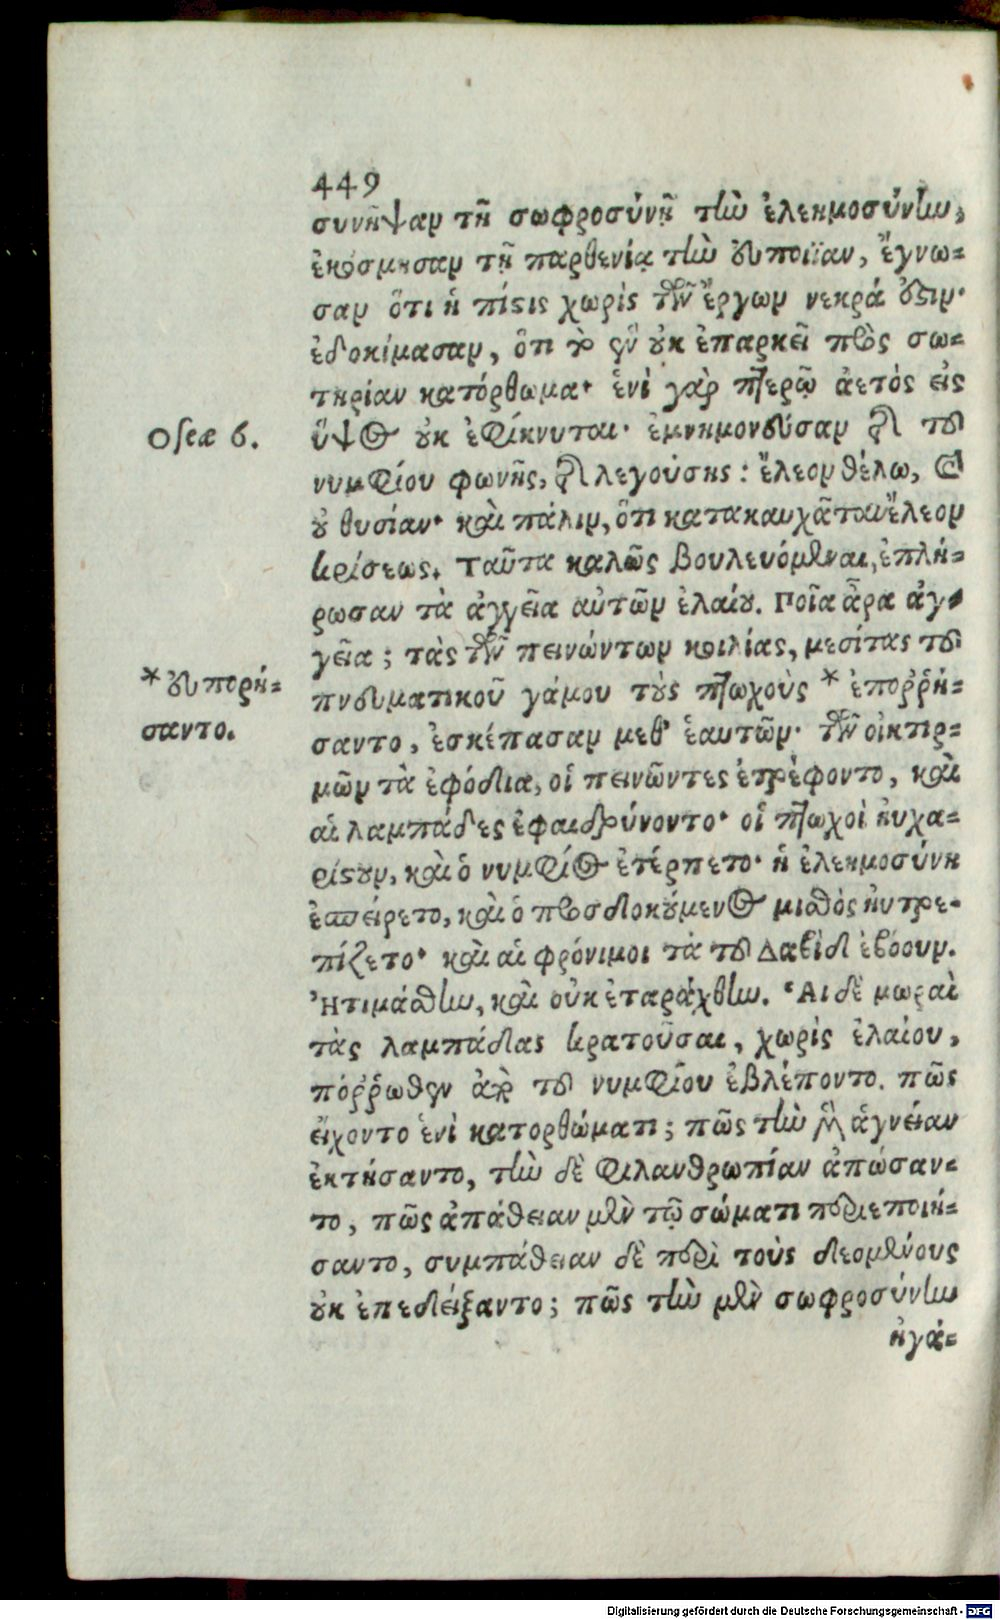 449
συνῆψαν τῇ σωφροσύνῃ τὴν ἐλεημοσύνην,
ἐκόσμησαν τῇ παρθενίᾳ τὴν εὐποιΐαν, ἔγνω-
σαν ὅτι ἡ πίστις χωρὶς τῶν ἔργων νεκρά ἐστιν·
ἐδοκίμασαν, ὅτι τὸ ἓν οὐκ ἐπαρκεῖ πρὸς σω-
τηρίαν κατόρθωμα· ἑνὶ γὰρ πτερῷ ἀετὸς εἰς
Oseæ 6. ὕψος οὐκ ἐφίκνυται· ἐμνημονεύσαν καὶ τοῦ
νυμφίου φωνῆς, τῆς λεγούσης: ἔλεον θέλω, καὶ
οὐ θυσίαν· καὶ πάλιν, ὅτι κατακαυχᾶται ἔλεον
κρίσεως. Ταῦτα καλῶς βουλευόμεναι, ἐπλή-
ρωσαν τὰ ἀγγεῖα αὐτῶν ἐλαίου. Ποῖα ἆρα ἀγ-
γεῖα; τὰς τῶν πεινώντων κοιλίας, μεσίτας τοῦ
* εὐπορή- πνευματικοῦ γάμου τοὺς πτωχοὺς * ἐποῤῥή-
σαντο. σαντο, ἐσκέπασαν μεθ' ἑαυτῶν· τῶν οἰκτιρ-
μῶν τὰ ἐφόδια, οἱ πεινῶντες ἐτρέφοντο, καὶ
αἱ λαμπάδες ἐφαιδρύνοντο· οἱ πτωχοὶ ηὐχα-
ρίστουν, καὶ ὁ νυμφίος ἐτέρπετο· ἡ ἐλεημοσύνη
ἐσπείρετο, καὶ ὁ προσδιοκούμενος μισθὸς ηὐτρε-
πίζετο· καὶ αἱ φρόνιμοι τὰ τοῦ Δαβὶδ ἐβόουν.
Ἡτιμάσθην, καὶ οὐκ ἐταράχθην. Αἱ δὲ μωραὶ
τὰς λαμπάδας κρατοῦσαι, χωρὶς ἐλαίου,
πόῤῥωθεν ἀπὸ τοῦ νυμφίου ἐβλέποντο. πῶς
εἴχοντο ἑνὶ κατορθώματι; πῶς τὴν μὲν ἁγνείαν
ἐκτήσαντο, τὴν δὲ φιλανθρωπίαν ἀπώσαν-
το, πῶς ἀπάθειαν μὲν τῷ σώματι περιεποιή-
σαντο, συμπάθειαν δὲ περὶ τοὺς δεομένους
οὐκ ἐπεδείξαντο; πῶς τὴν μὲν σωφροσύνην
ἠγά-
Digitalisierung gefördert durch die Deutsche Forschungsgemeinschaft - DFG